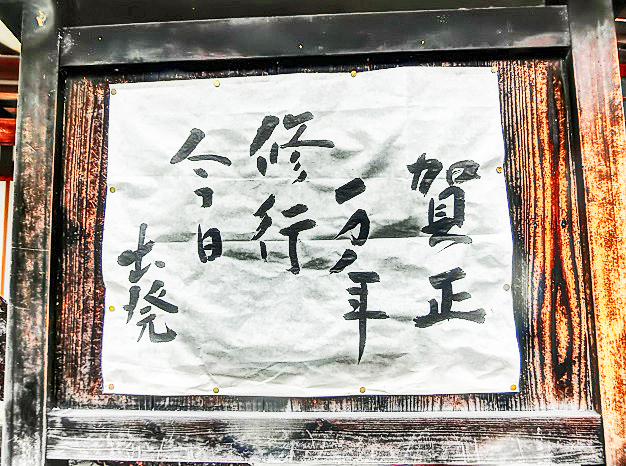 賀正
一万年
修行
今日
出発